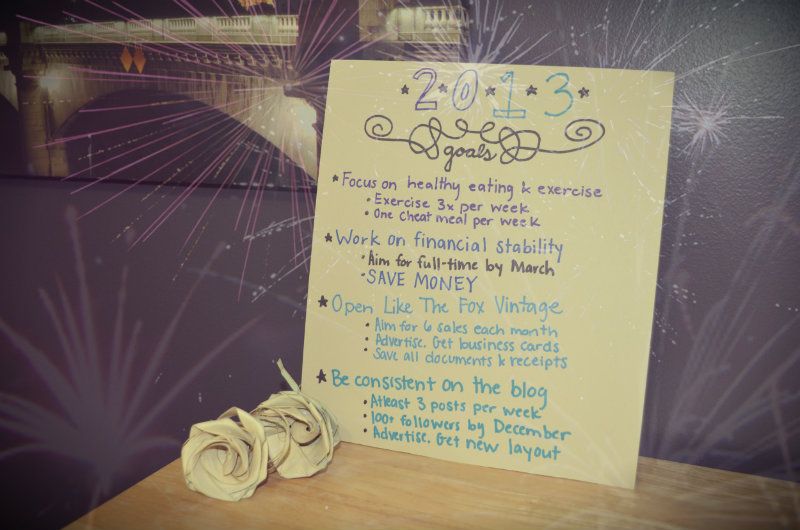 2013
goals
Focus on healthy eating & exercise
Exercise 3x per week
One cheat meal per week
Work on financial stability
Aim for full-time by March
SAVE MONEY
Open Like The Fox Vintage
Aim for 6 sales each month
Advertise. Get business cards
Save all documents & receipts
Be consistent on the blog
Atleast 3 posts per week
100+ followers by December
Advertise. Get new layout